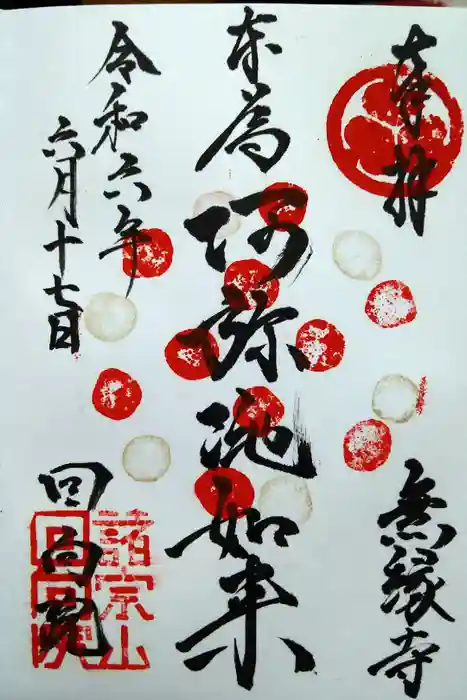 奉拝
無縁寺
本為
阿弥陀如来
令和六年
六月十七日
回向院
諸宗山
回向院